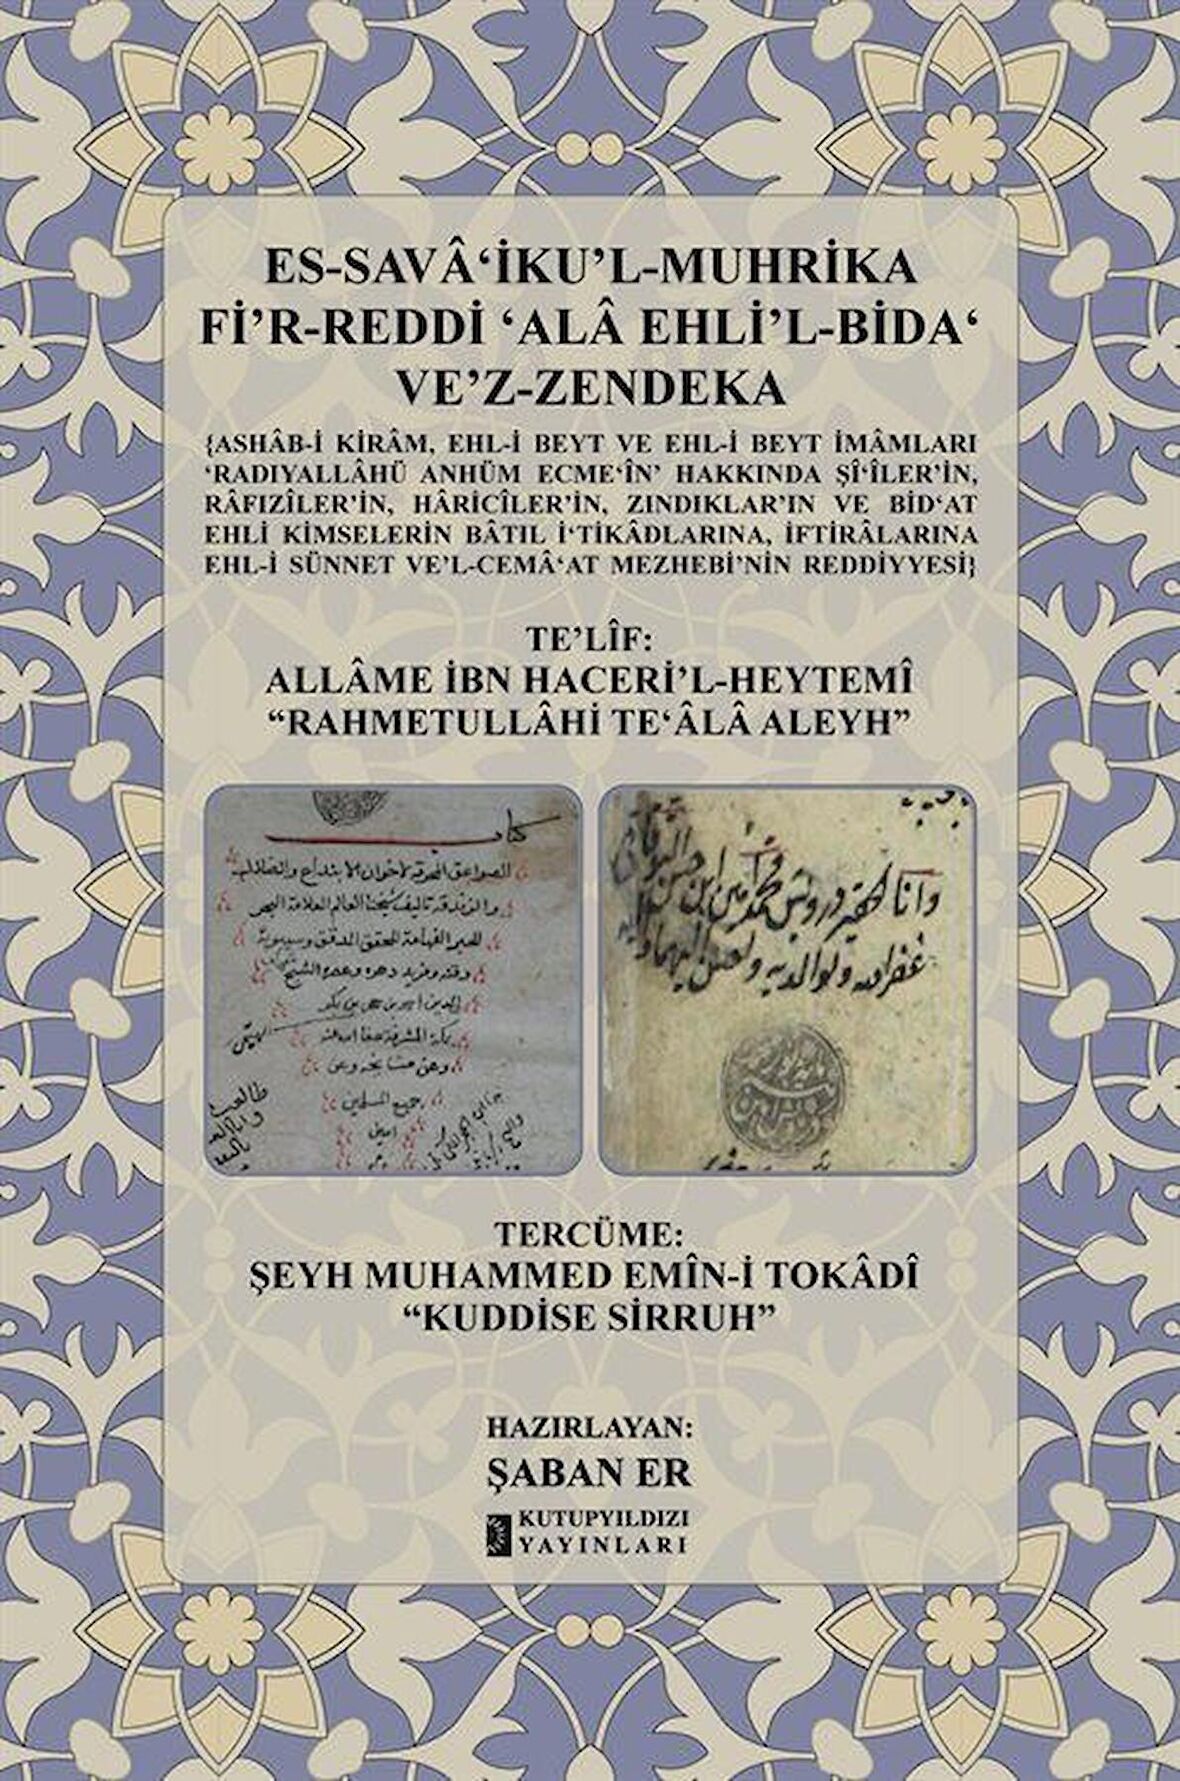 ES-SAVÂ‘İKU’L-MUHRİKA
Fİ’R-REDDİ ‘ALÂ EHLİ’L-BİDA‘
VE’Z-ZENDEKA
{ASHÂB-İ KİRÂM, EHL-İ BEYT VE EHL-İ BEYT İMÂMLARI
‘RADIYALLÂHÜ ANHÜM ECME‘ÎN’ HAKKINDA Şİ‘ÎLER’İN,
RÂFIZÎLER’İN, HÂRİCÎLER’İN, ZINDIKLAR’IN VE BİD‘AT
EHLİ KİMSELERİN BÂTIL İ‘TİKÂDLARINA, İFTİRÂLARINA
EHL-İ SÜNNET VE’L-CEMÂ‘AT MEZHEBİ’NİN REDDİYYESİ}
TE’LÎF:
ALLÂME İBN HACERİ’L-HEYTEMÎ
“RAHMETULLÂHİ TE‘ÂLÂ ALEYH”
كتاب
الصواعق المحرقة لاخوان الابتداع والضلال
والزندقة تاليف شيخنا العالم العلامة
الفهامة المحقق المدقق وسيبويه
وقته وفريد دهره وعصره الشيخ
جميع المسلمين
امين
غفر الله ولوالديه
TERCÜME:
ŞEYH MUHAMMED EMÎN-İ TOKÂDÎ
“KUDDİSE SİRRUH”
HAZIRLAYAN:
ŞABAN ER
KUTUPYILDIZI
YAYINLARI